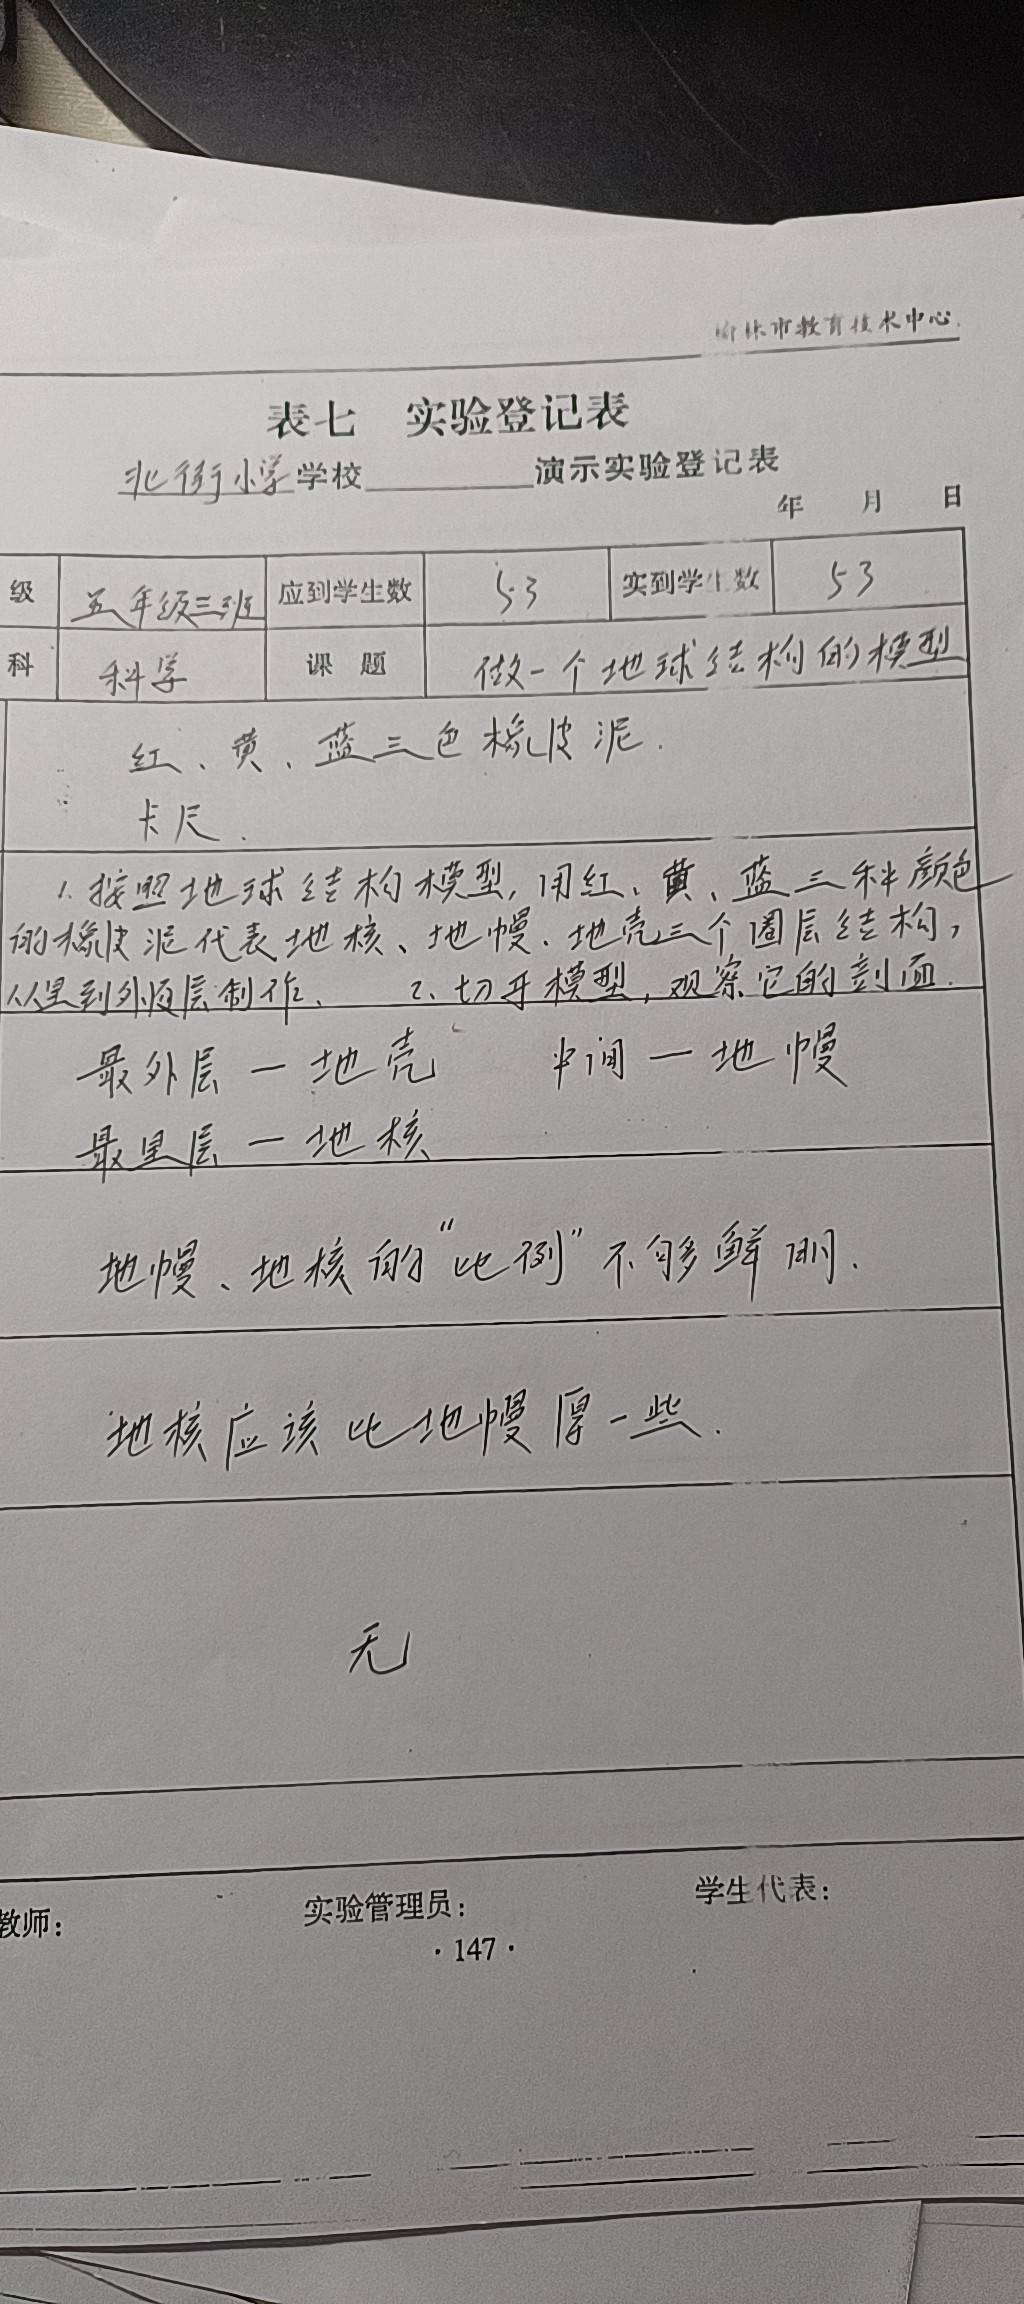 榆林市教育技术中心
表七 实验登记表
北街小学学校 演示实验登记表
年 月 日
级 五年级三班 应到学生数 53 实到学生数 53
科 科学 课题 做一个地球结构的模型
红、黄、蓝三色橡皮泥.
卡尺.
1. 按照地球结构模型,用红、黄、蓝三种颜色
的橡皮泥代表地核、地幔、地壳三个圈层结构,
从里到外逐层制作、 2. 切开模型,观察它的剖面.
最外层—地壳 中间—地幔
最里层—地核
地幔、地核的“比例”不够鲜明.
地核应该比地幔厚一些.
无
教师: 实验管理员: 学生代表:
·147·